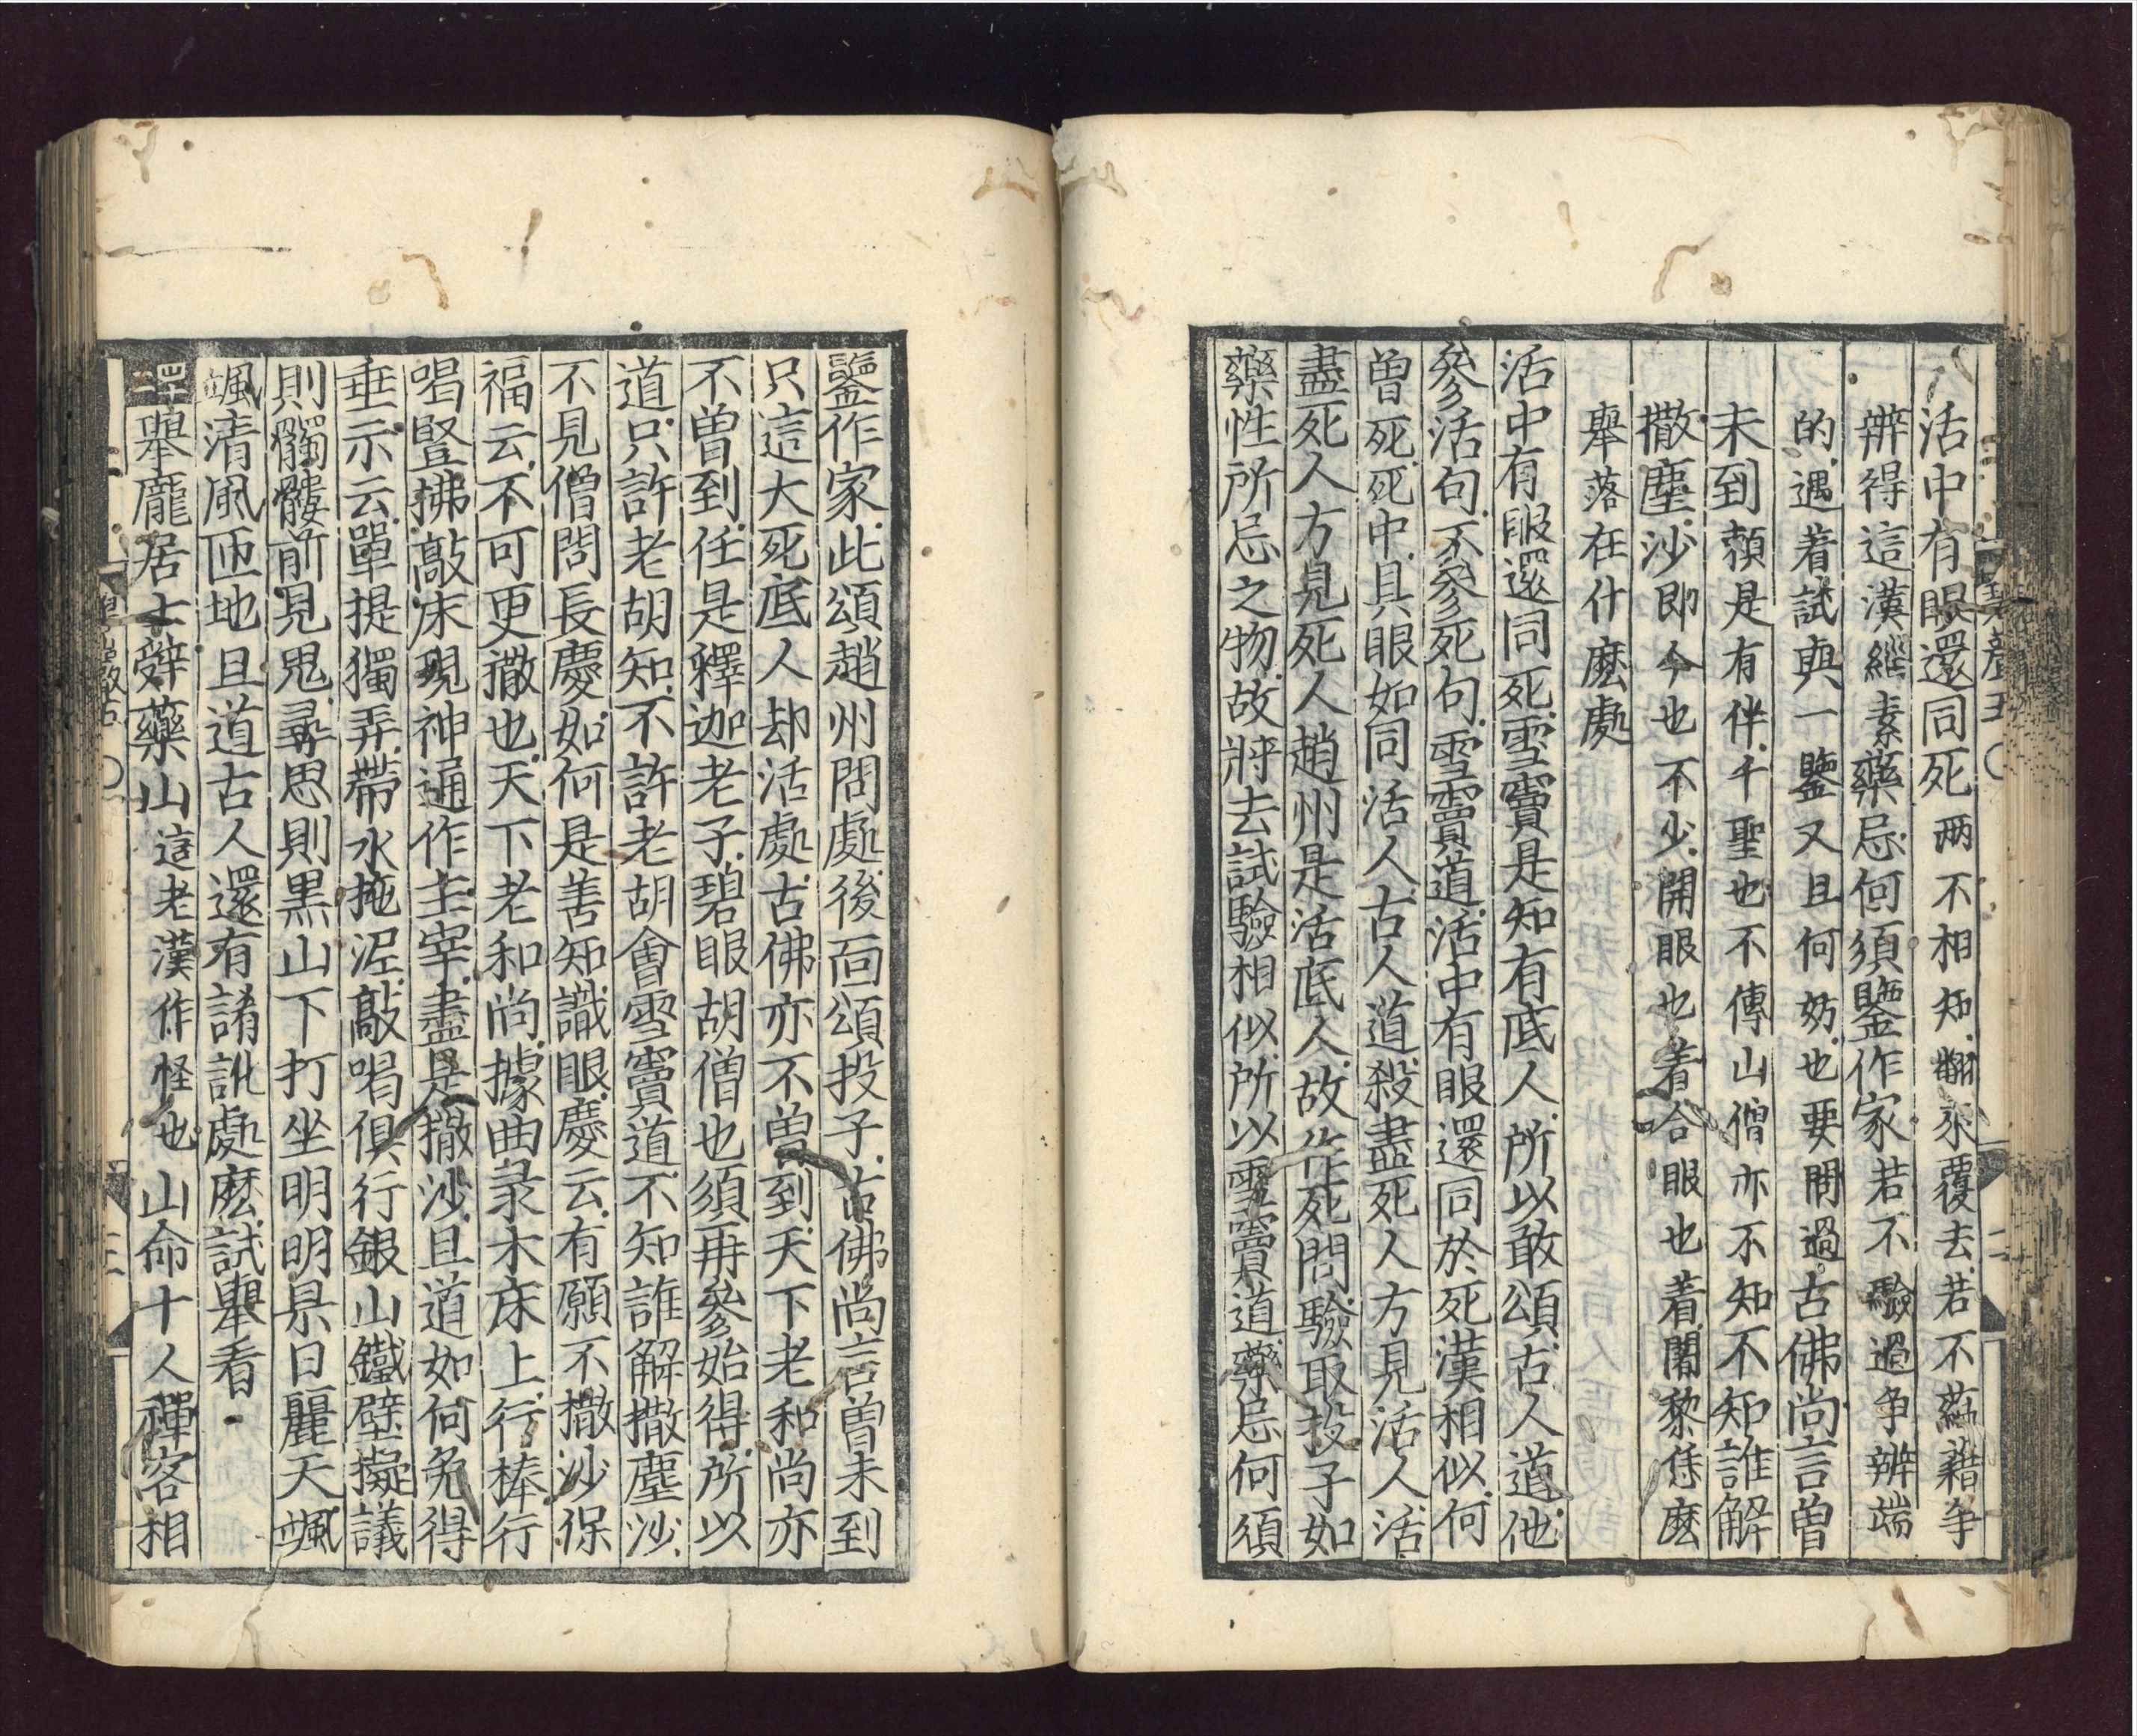 活中有眼還同死兩不相知翻來覆去若不蘊藉爭
辨得這漢緇素藥忌何須鑒作家若不驗過争辨端
的遇着試與一鑒又且何妨也要問過古佛尚言曽
未到頼是有伴千聖也不傳山僧亦不知不知誰解
撒塵沙即今也不少開眼也着合眼也着闍黎恁麽
舉落在什麽處
活中有眼還同死雪竇是知有底人所以敢頌古人道他
參活句不參死句雪竇道活中有眼還同於死漢相似何
曽死死中具眼如同活人古人道殺盡死人方見活人活
盡死人方見死人趙州是活底人故作死問驗取投子如
藥性所忌之物故將去試驗相似所以雪竇道藥忌何須
鑒作家此頌趙州問處後面頌投子古佛尚言曽未到
只這大死底人却活處古佛亦不曽到天下老和尚亦
不曽到任是釋迦老子碧眼胡僧也須再參始得所以
道只許老胡知不許老胡會雪竇道不知誰解撒塵沙
不見僧問長慶如何是善知識眼慶云有願不撒沙保
福云不可更撒也天下老和尚據曲录木床上行棒行
喝竪拂敲床現神通作主宰盡是撒沙且道如何免得
垂示云單提獨弄帶水拖泥敲唱俱行銀山鐵壁擬議
則髑髏前見鬼尋思則黒山下打坐明明杲日麗天颯
颯清風匝地且道古人還有誵訛處麽試舉看
四十二舉龐居士辭藥山這老漢作怪也山命十人禪客相